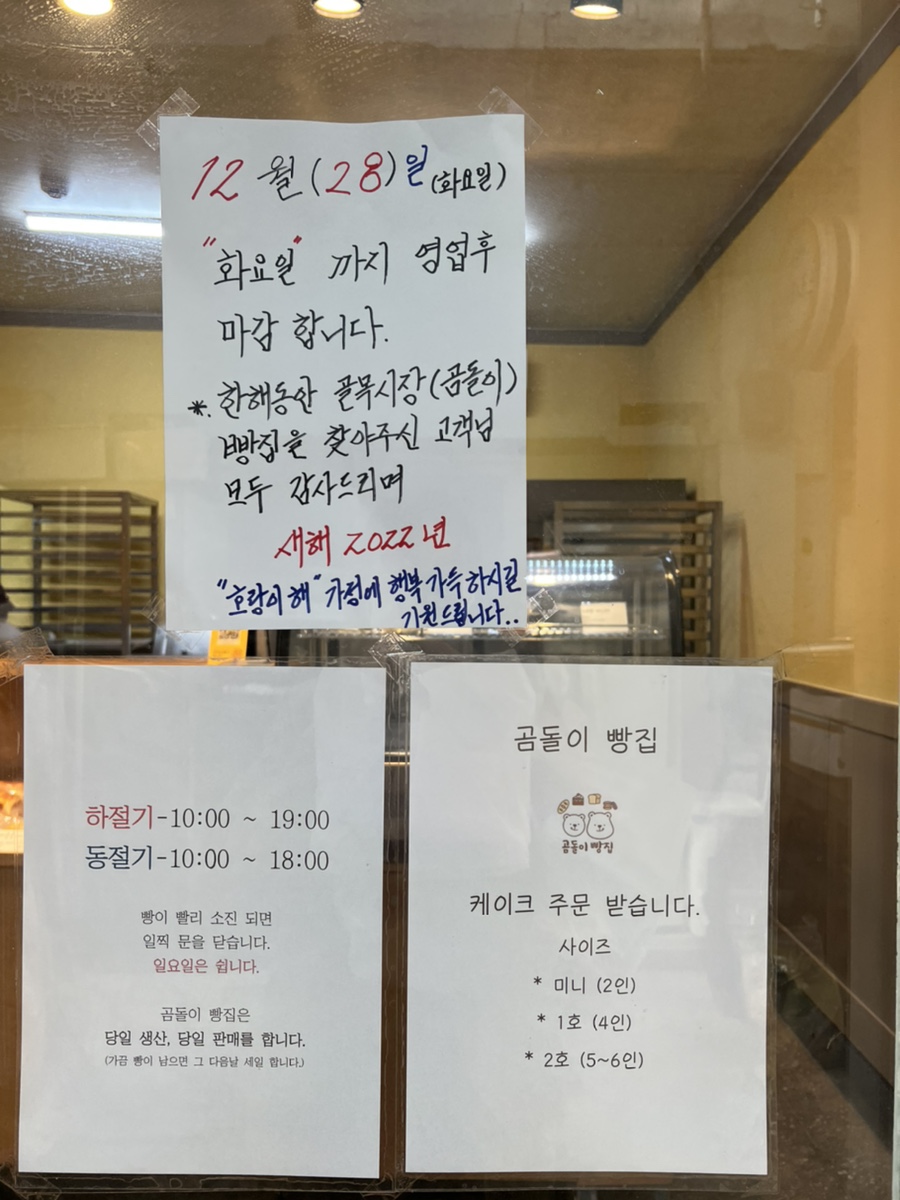 12월(28)일(화요일)
"화요일" 까지 영업후
마감 합니다.
*. 한해동안 골목시장(곰돌이)
빵집을 찾아주신 고객님
모두 감사드리며
새해 2022년
"호랑이해" 가정에 행복 가득 하시길
기원드립니다..
하절기-10:00 ~ 19:00
동절기-10:00 ~ 18:00
빵이 빨리 소진 되면
일찍 문을 닫습니다.
일요일은 쉽니다.
곰돌이 빵집은
당일 생산, 당일 판매를 합니다.
(가끔 빵이 남으면 그 다음날 세일 합니다.)
곰돌이 빵집
곰돌이 빵집
케이크 주문 받습니다.
사이즈
* 미니 (2인)
* 1호 (4인)
* 2호 (5~6인)